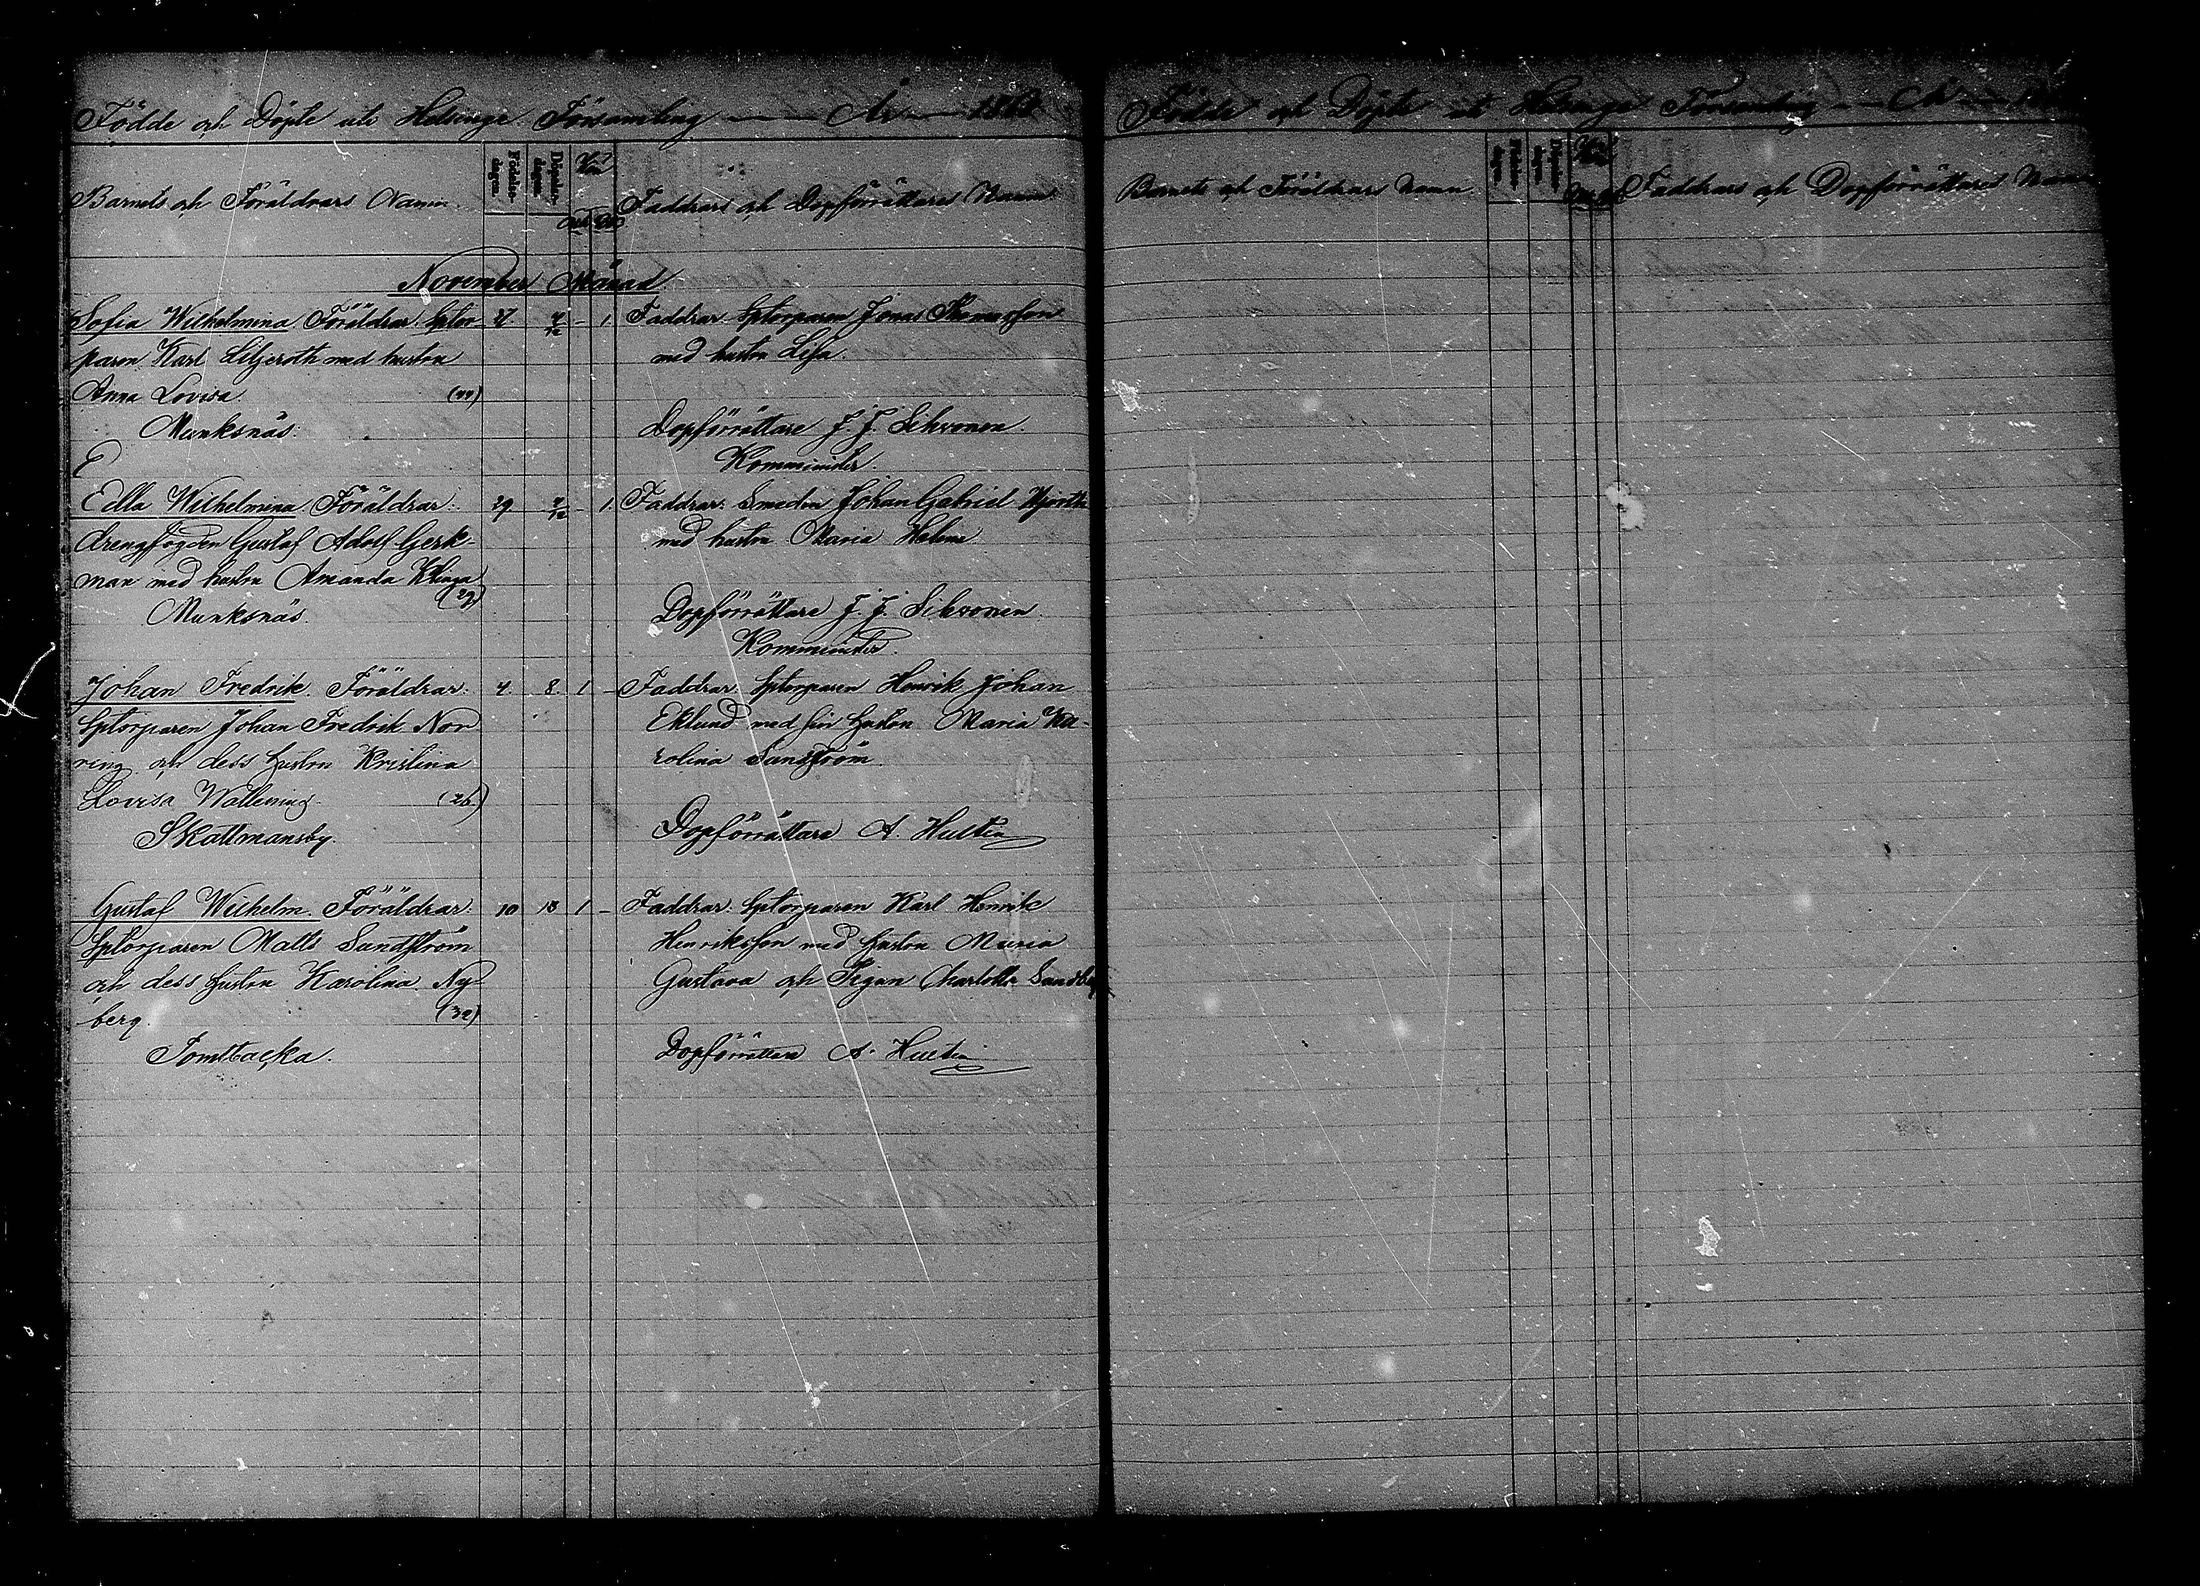 Födde och Döpte uti Helsinge Församling — År — 186
Barnets och Föräldrars Namn.
Födelse-dagen
Döpelse-dagen
Kön
Faddrars och Dopförrättares Namn
November Månad
Sofia Wilhelmina. Föräldrar: Sptor- 27 4/12 - 1
paren Karl Liljeroth med hustru
Anna Lovisa.
Munksnäs.
Faddrar: Sptorparen Jonas Thomasson
med hustru Lisa.
Dopförrättare J. J. Sihvonen.
Komminister.
E
Edla Wilhelmina. Föräldrar: 29 4/12 - 1
drengfogden Gustaf Adolf Gerk-
man med hustru Amanda Klinga
(29)
Munksnäs.
Faddrar: Smeden Johan Gabriel
med hustru Maria Helena
Dopförrättare J. J. Sihvonen.
Komminister.
Johan Fredrik. Föräldrar: 4 8 1 -
Sptorparen Johan Fredrik Nor
ring och dess hustru Kristina
Lovisa Wallening. (26)
Skattmansby.
Faddrar: Sptorparen Henrik Johan
Eklund med sin hustru Maria Ka-
rolina Sandström.
Dopförrättare A. Hulten
Gustaf Wilhelm. Föräldrar: 10 18 1 -
Sptorparen Matts Sandström
och dess hustru Karolina Ny-
berg. (32)
Tomtbacka.
Faddrar: Sptorparen Karl Henrik
Henriksson med hustru Maria
Gustava och Pigan Charlotta
Dopförrättare A. Hulten
Födde och Döpte uti Helsinge Församling — År
Barnets och Föräldrars Namn
Kön
Faddrars och Dopförrättares Namn